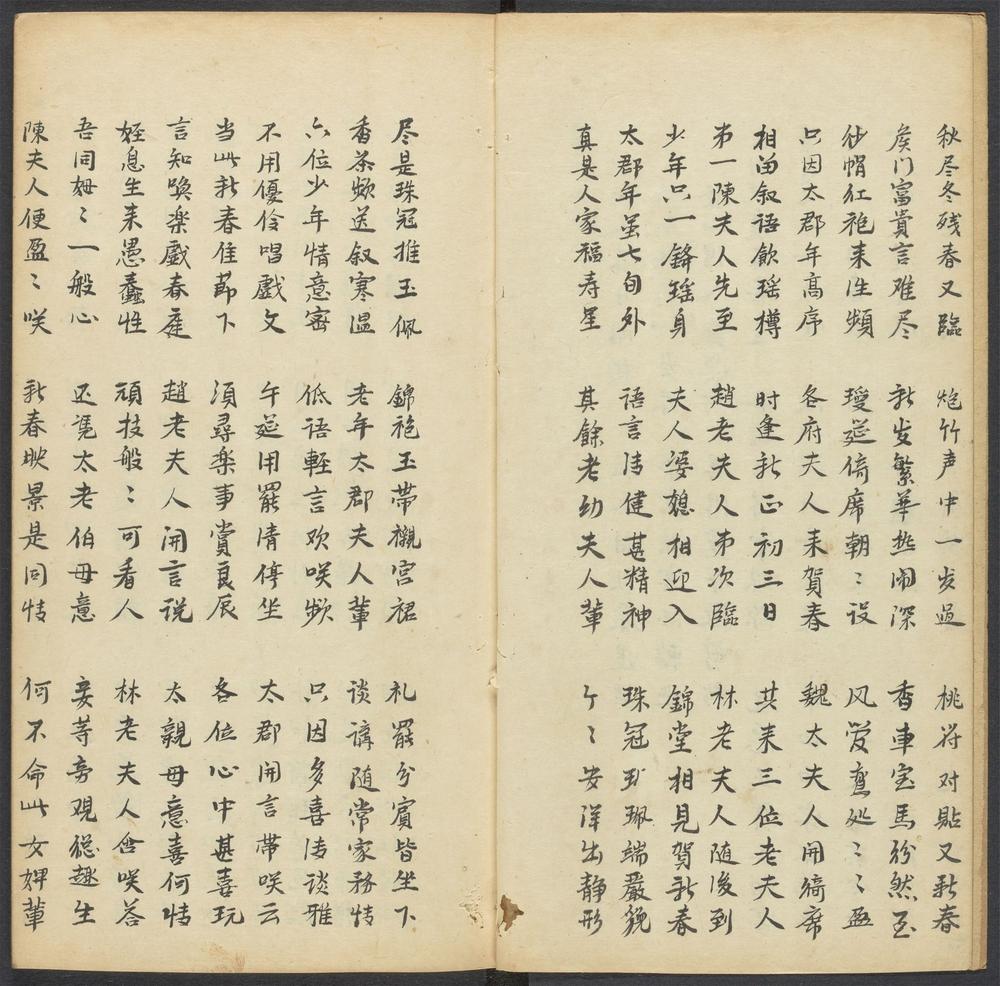 秋尽冬残春又臨 炮竹声中一岁過 桃符对貼又新春
侯门富貴言难尽 新岁繁華热闹深 香車宝馬纷然至
纱帽红袍来往頻 瓊筵倚席朝〻设 风管鸾处〻盈
只因太郡年髙序 各府夫人来賀春 魏太夫人開绮席
相留叙語飲瑶樽 时逢新正初三日 共来三位老夫人
第一陳夫人先至 趙老夫人第次臨 林老夫人随後到
少年只一鋒瑶身 夫人婆媳相迎入 錦堂相見賀新春
太郡年虽七旬外 語言清健甚精神 珠冠玉珮端嚴貌
真是人家福寿星 其餘老幼夫人輩 个〻安洋出静形
尽是珠冠推玉佩 錦袍玉带襯宫裙 礼罷分賓皆坐下
香茶頻送叙寒温 老年太郡夫人輩 谈講随常家務情
六位少年情意密 低語輕言欢咲頻 只因多喜清谈雅
不用優伶唱戲文 午筵用罷清停坐 太郡開言带咲云
当此新春佳莭下 須尋樂事賞良辰 各位心中甚喜玩
言知喚楽戲春庭 趙老夫人開言説 太親母意喜何情
姪息生来愚蠢性 頑技般〻可看人 林老夫人含咲荅
吾同姆〻一般心 还凭太老伯母意 妾等旁觀穏趣生
陳夫人便盈〻咲 新春映景是同情 何不命此女婢輩